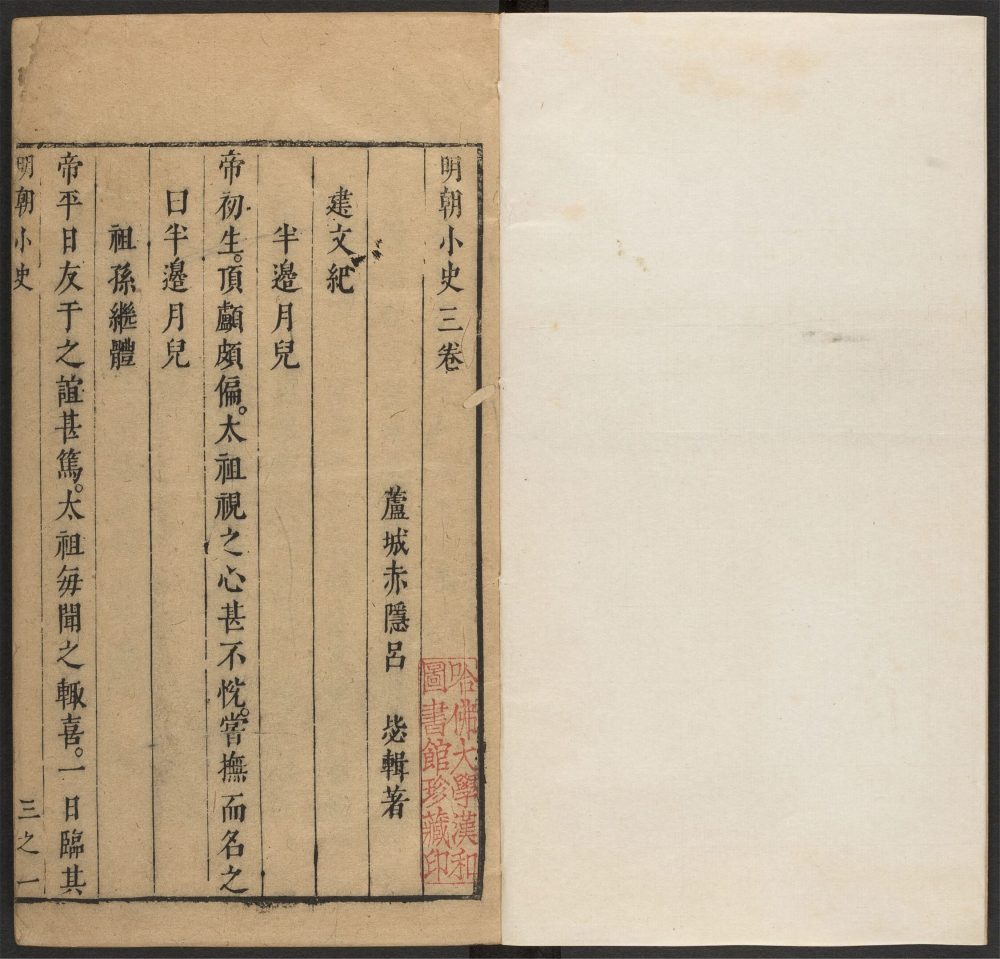 明朝小史三卷
蘆城赤隱呂 毖輯著
建文紀
半邊月兒
帝初生。頂顱頗偏。太祖視之心甚不悅。嘗撫而名之
曰半邊月兒
祖孫繼體
帝平日友于之誼甚篤。太祖每聞之輙喜。一日臨其
明朝小史
三之一
哈佛大學漢和
圖書館珍藏印